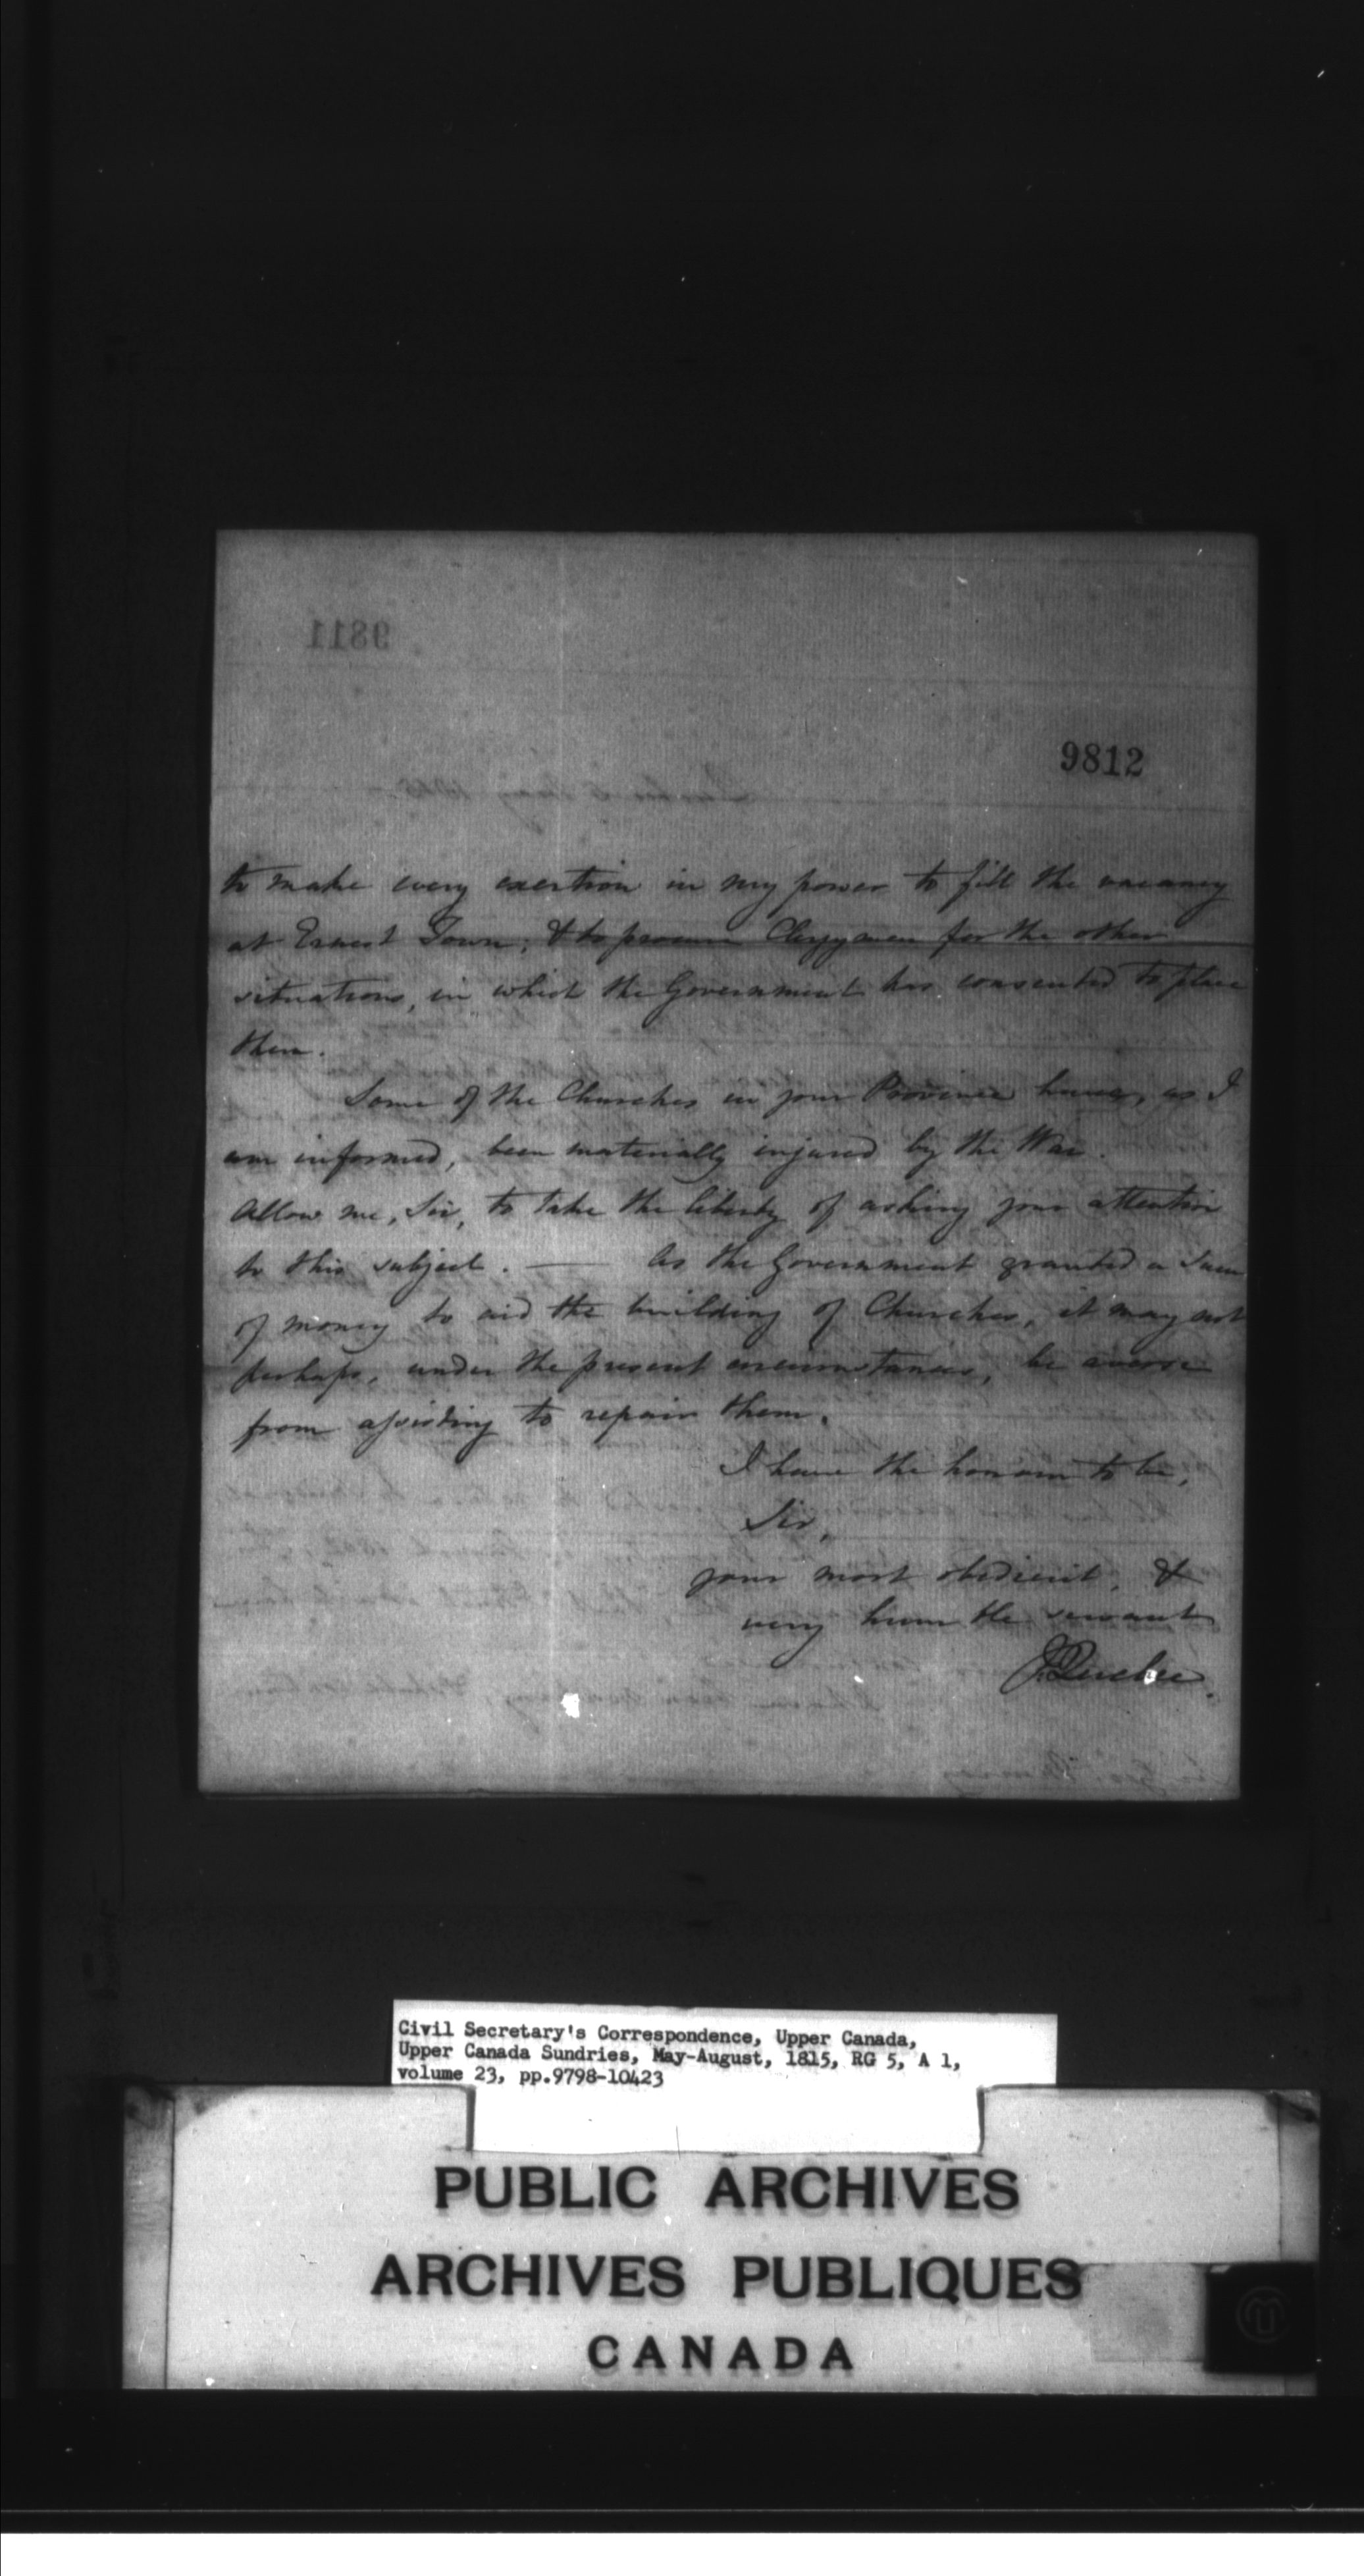 9811
9812
to make every exertion in my power to fill the vacancy
at Ernest Town; & to procure Clergymen for the other
situations, in which the Government has consented to place
them.
Some of the Churches in your Province have, as I
am informed, been materially injured by the War.
Allow me, Sir, to take the liberty of asking your attention
to this subject. — As the Government granted a Sum
of money to aid the building of Churches, it may not
perhaps, under the present circumstances, be averse
from assisting to repair them.
I have the honour to be,
Sir,
your most obedient, &
very humble servant
J. Quebec.
Civil Secretary's Correspondence, Upper Canada,
Upper Canada Sundries, May-August, 1815, RG 5, A 1,
volume 23, pp.9798-10423
PUBLIC ARCHIVES
ARCHIVES PUBLIQUES
CANADA